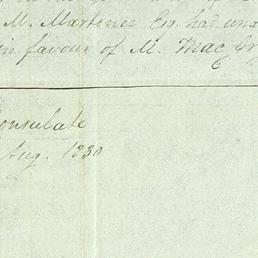 M. Martinez Esq. has una
in favour of M. Mac Gr
Consulate
Aug. 1830